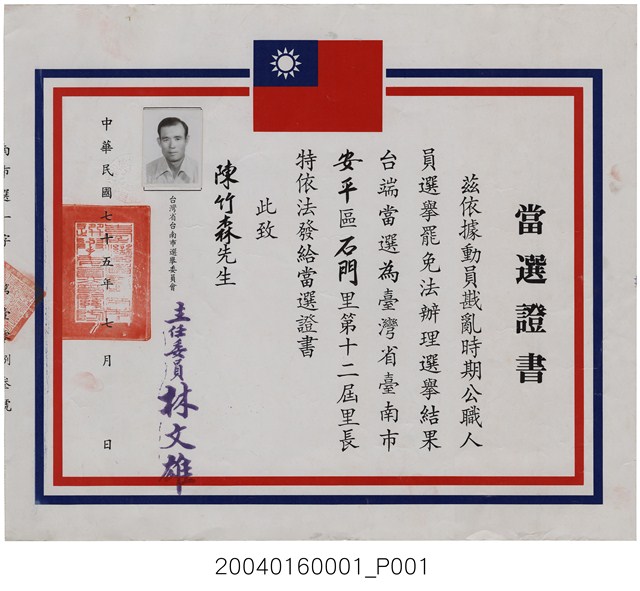 當選證書
茲依據動員戡亂時期公職人
員選舉罷免法辦理選舉結果
台端當選為臺灣省臺南市
安平區石門里第十二屆里長
特依法發給當選證書
此致
陳竹森先生
台灣省台南市選舉委員會
主任委員林文雄
中華民國七十五年七月 日
南市選一字
20040160001_P001